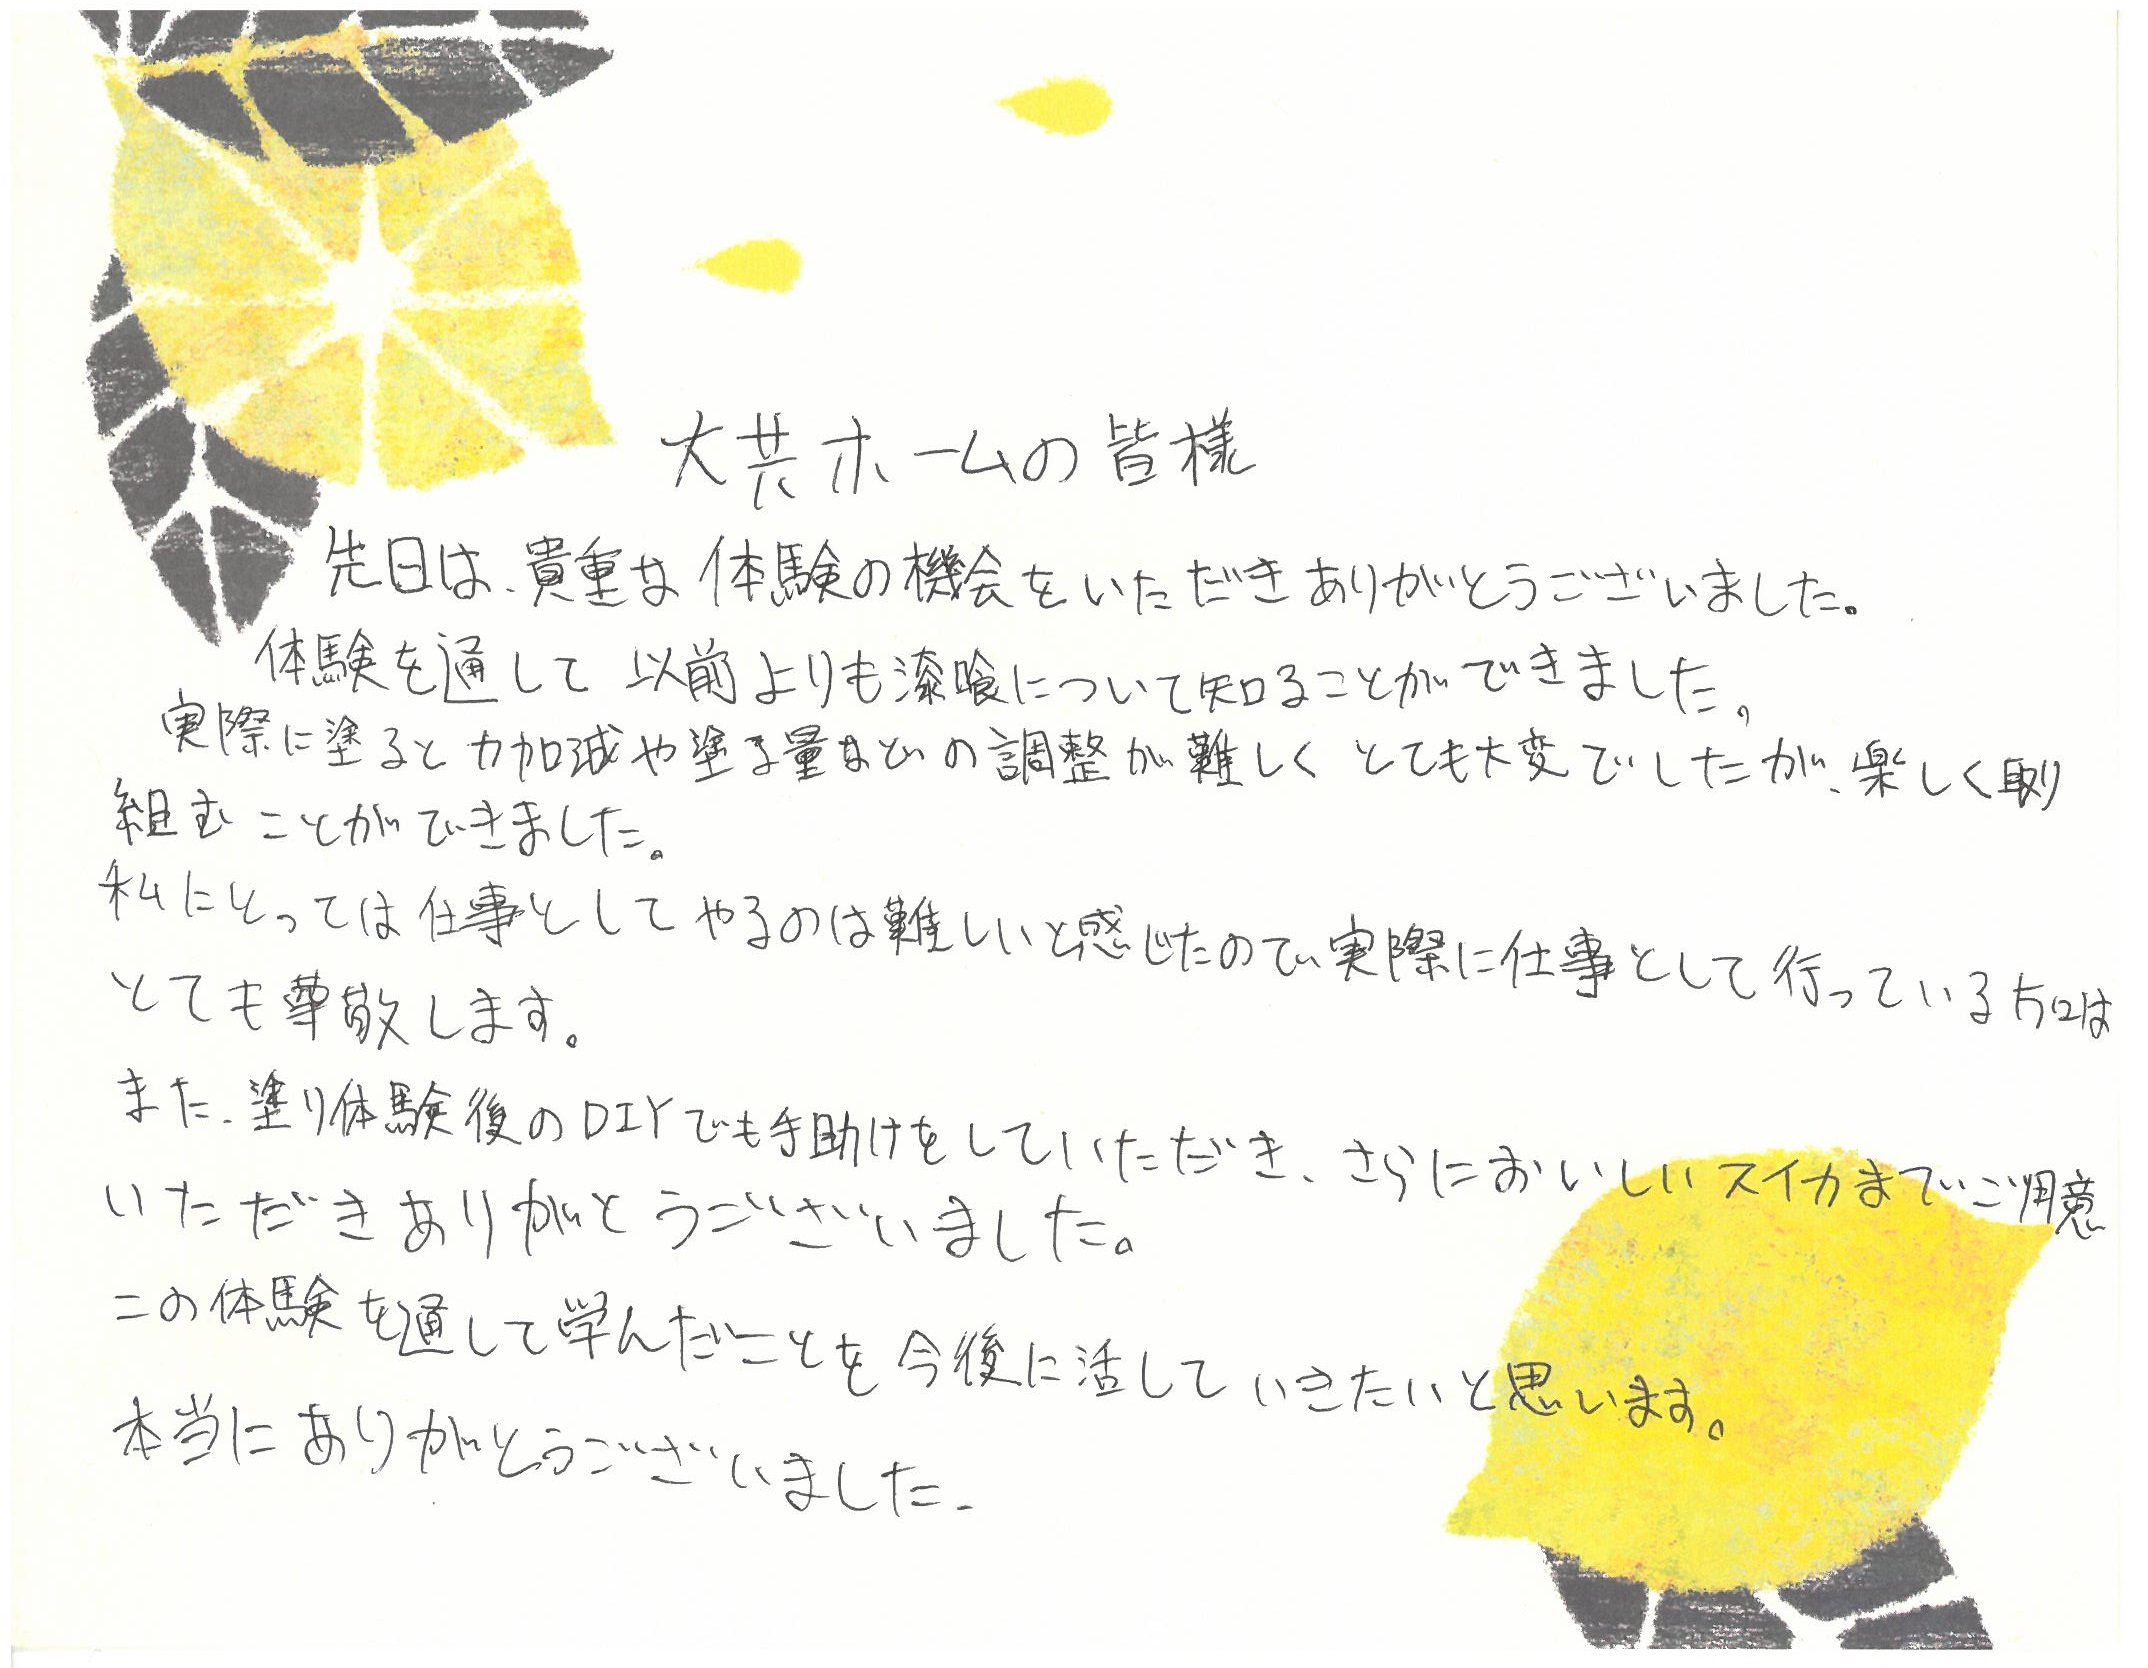 大共ホームの皆様
先日は、貴重な体験の機会をいただきありがとうございました。
体験を通して以前よりも漆喰について知ることができました。
実際に塗ると力加減や塗る量などの調整が難しくとても大変でしたが、楽しく取り
組むことができました。
私にとっては仕事としてやるのは難しいと感じたので実際に仕事として行っている方には
とても尊敬します。
また、塗り体験後のDIYでも手助けをしていただき、さらにおいしいスイカまでご用意
いただきありがとうございました。
この体験を通して学んだことを今後に活していきたいと思います。
本当にありがとうございました。